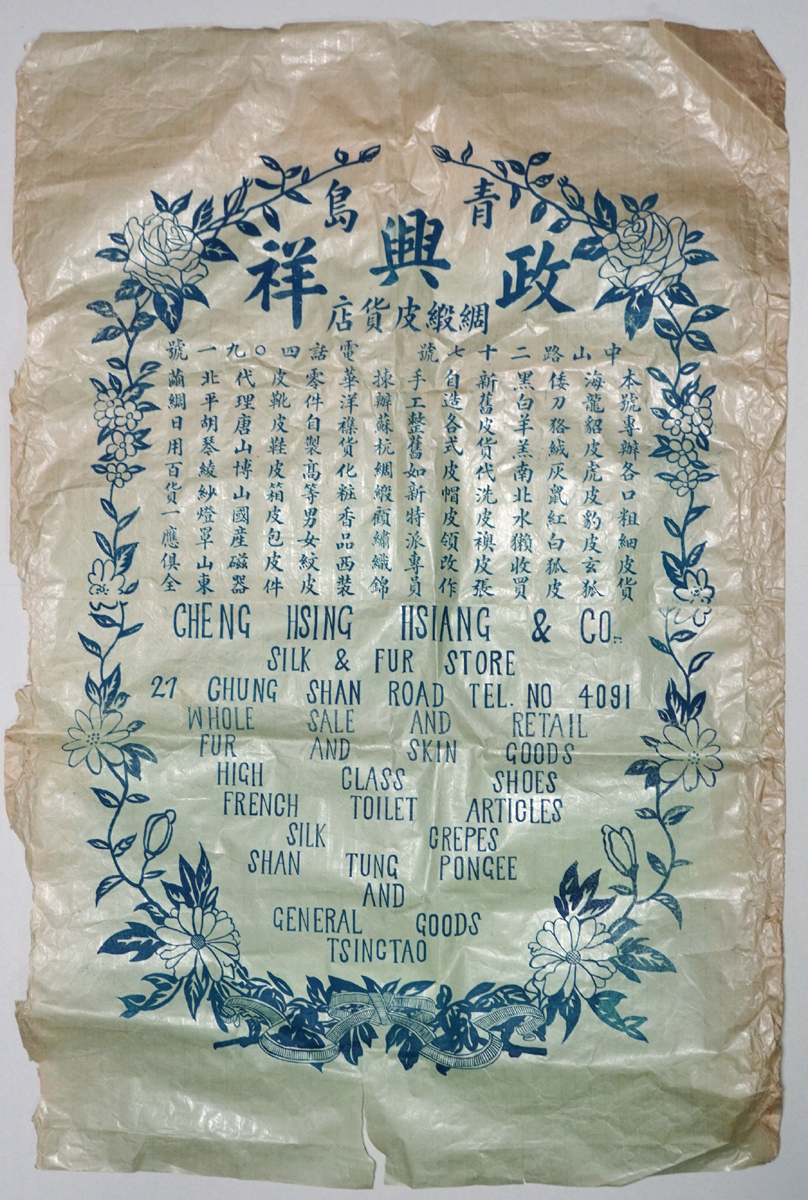 青島
政興祥
綢緞皮貨店
中山路二十七號 電話四〇九一號
本號專辦各口粗細皮貨
海龍貂皮虎皮豹皮玄狐
倭刀狢絨灰鼠紅白狐皮
黑白羊羔南北水獺收買
新舊皮貨代洗皮襖皮張
自造各式皮帽皮領改作
手工整舊如新特派專員
揀辦蘇杭綢緞顧繡織錦
華洋襍貨化粧香品西裝
零件自製高等男女紋皮
皮靴皮鞋皮箱皮包皮件
代理唐山博山國產磁器
北平胡琴綾紗燈罩山東
繭綢日用百貨一應俱全
CHENG HSING HSIANG & CO.
SILK & FUR STORE
27 CHUNG SHAN ROAD TEL. NO 4091
WHOLE SALE AND RETAIL
FUR AND SKIN GOODS
HIGH CLASS SHOES
FRENCH TOILET ARTICLES
SILK CREPES
SHAN TUNG PONGEE
AND
GENERAL GOODS
TSINGTAO